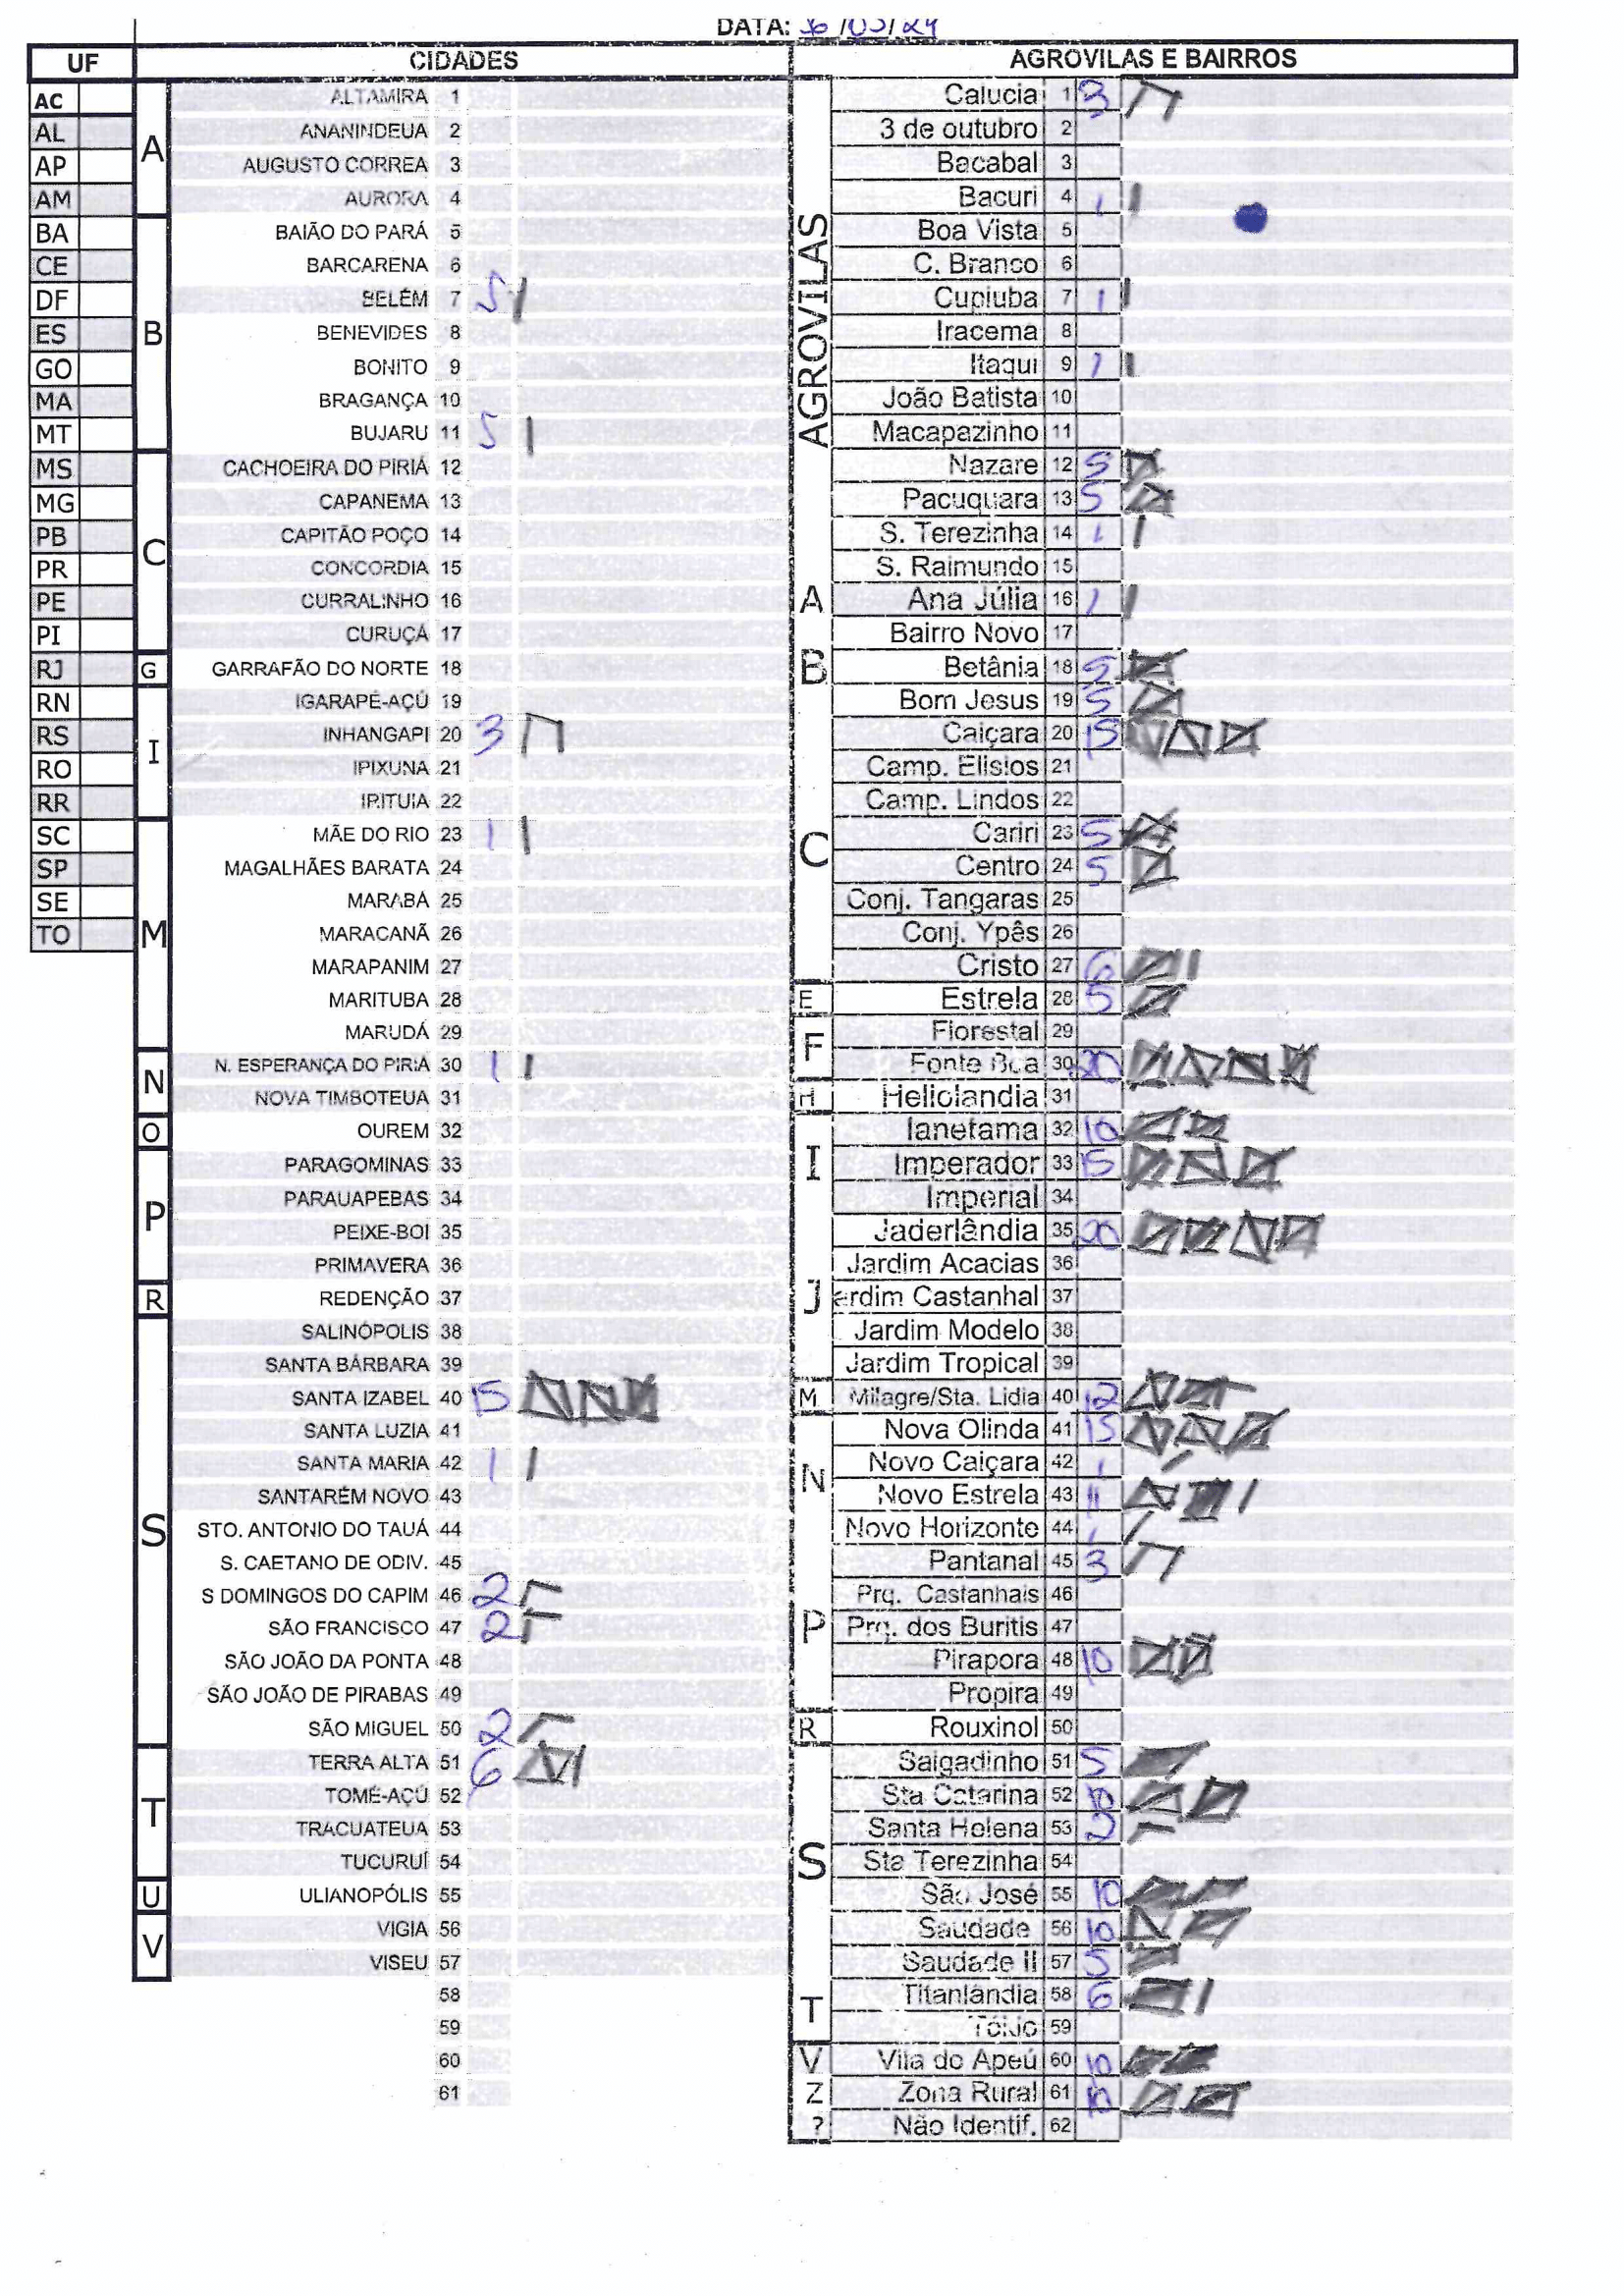 DATA: 
UF CIDADES AGROVILAS E BAIRROS
AC
AL
AP
AM
BA
CE
DF
ES
GO
MA
MT
MS
MG
PB
PR
PE
PI
RJ
RN
RS
RO
RR
SC
SP
SE
TO
A
ALTAMIRA 1
ANANINDEUA 2
AUGUSTO CORREA 3
AURORA 4
B
BAIÃO DO PARÁ 5
BARCARENA 6
BELÉM 7 5
BENEVIDES 8
BONITO 9
BRAGANÇA 10
BUJARU 11 5
C
CACHOEIRA DO PIRIÁ 12
CAPANEMA 13
CAPITÃO POÇO 14
CONCORDIA 15
CURRALINHO 16
CURUÇÁ 17
G
GARRAFÃO DO NORTE 18
I
IGARAPÉ-AÇÚ 19
INHANGAPI 20 3
IPIXUNA 21
IRITUIA 22
M
MÃE DO RIO 23 1
MAGALHÃES BARATA 24
MARABÁ 25
MARACANÃ 26
MARAPANIM 27
MARITUBA 28
MARUDÁ 29
N
N. ESPERANÇA DO PIRIÁ 30 1
NOVA TIMBOTEUA 31
O
OUREM 32
P
PARAGOMINAS 33
PARAUAPEBAS 34
PEIXE-BOI 35
PRIMAVERA 36
R
REDENÇÃO 37
S
SALINÓPOLIS 38
SANTA BÁRBARA 39
SANTA IZABEL 40 15
SANTA LUZIA 41
SANTA MARIA 42 1
SANTARÉM NOVO 43
STO. ANTONIO DO TAUÁ 44
S. CAETANO DE ODIV. 45
S DOMINGOS DO CAPIM 46 2
SÃO FRANCISCO 47 2
SÃO JOÃO DA PONTA 48
SÃO JOÃO DE PIRABAS 49
SÃO MIGUEL 50 2
T
TERRA ALTA 51 6
TOMÉ-AÇÚ 52
TRACUATEUA 53
TUCURUÍ 54
U
ULIANOPÓLIS 55
V
VIGIA 56
VISEU 57
58
59
60
61
AGROVILAS
Calucia 1 3
3 de outubro 2
Bacabal 3
Bacuri 4 1
Boa Vista 5
C. Branco 6
Cupiuba 7 1
Iracema 8
Itaqui 9 1
João Batista 10
Macapazinho 11
Nazare 12 5
Pacuquara 13 5
S. Terezinha 14 1
S. Raimundo 15
A
Ana Júlia 16 1
Bairro Novo 17
B
Betânia 18 5
Bom Jesus 19 5
Caiçara 20 15
Camp. Elisios 21
Camp. Lindos 22
C
Cariri 23 5
Centro 24 5
Conj. Tangaras 25
Conj. Ypês 26
Cristo 27 6
E
Estrela 28 5
F
Florestal 29
Fonte Boa 30 20
H
Heliolandia 31
I
Ianetama 32 10
Imperador 33 15
Imperial 34
J
Jaderlândia 35 20
Jardim Acacias 36
ardim Castanhal 37
Jardim Modelo 38
Jardim Tropical 39
M
Milagre/Sta. Lidia 40 12
N
Nova Olinda 41 15
Novo Caiçara 42 1
Novo Estrela 43 11
Novo Horizonte 44 1
P
Pantanal 45 3
Prq. Castanhais 46
Prq. dos Buritis 47
Pirapora 48 10
Propira 49
R
Rouxinol 50
S
Salgadinho 51 5
Sta Catarina 52 10
Santa Helena 53 2
Sta Terezinha 54
São José 55 10
Saudade 56 10
Saudade II 57 5
T
Titanlândia 58 6
Tókio 59
V
Vila do Apeú 60 10
Z
Zona Rural 61 10
?
Não Identif. 62